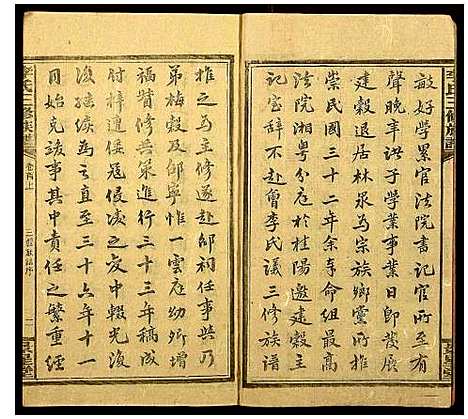 敲好學累官法院書記官所至有
聲晚年課子學業事業日即發展
建穀退居林泉為宗族鄉黨所推
崇民國三十二年余奉命組最高
法院湘粵分庭於桂陽邀建穀主
記室辭不赴會李氏議三修族譜
推之為主修遂赴邵祠任事乃
弟梅穀及邵寧惟一雲庭幼卿增
福贊修共策進行三十三年稿成
付梓遭倭寇侵境之友中輟光復
後繼續為之直至三十六年十一
月始克竣事其中責任之繁重經
李氏三修族譜
卷首上
李氏三修族譜